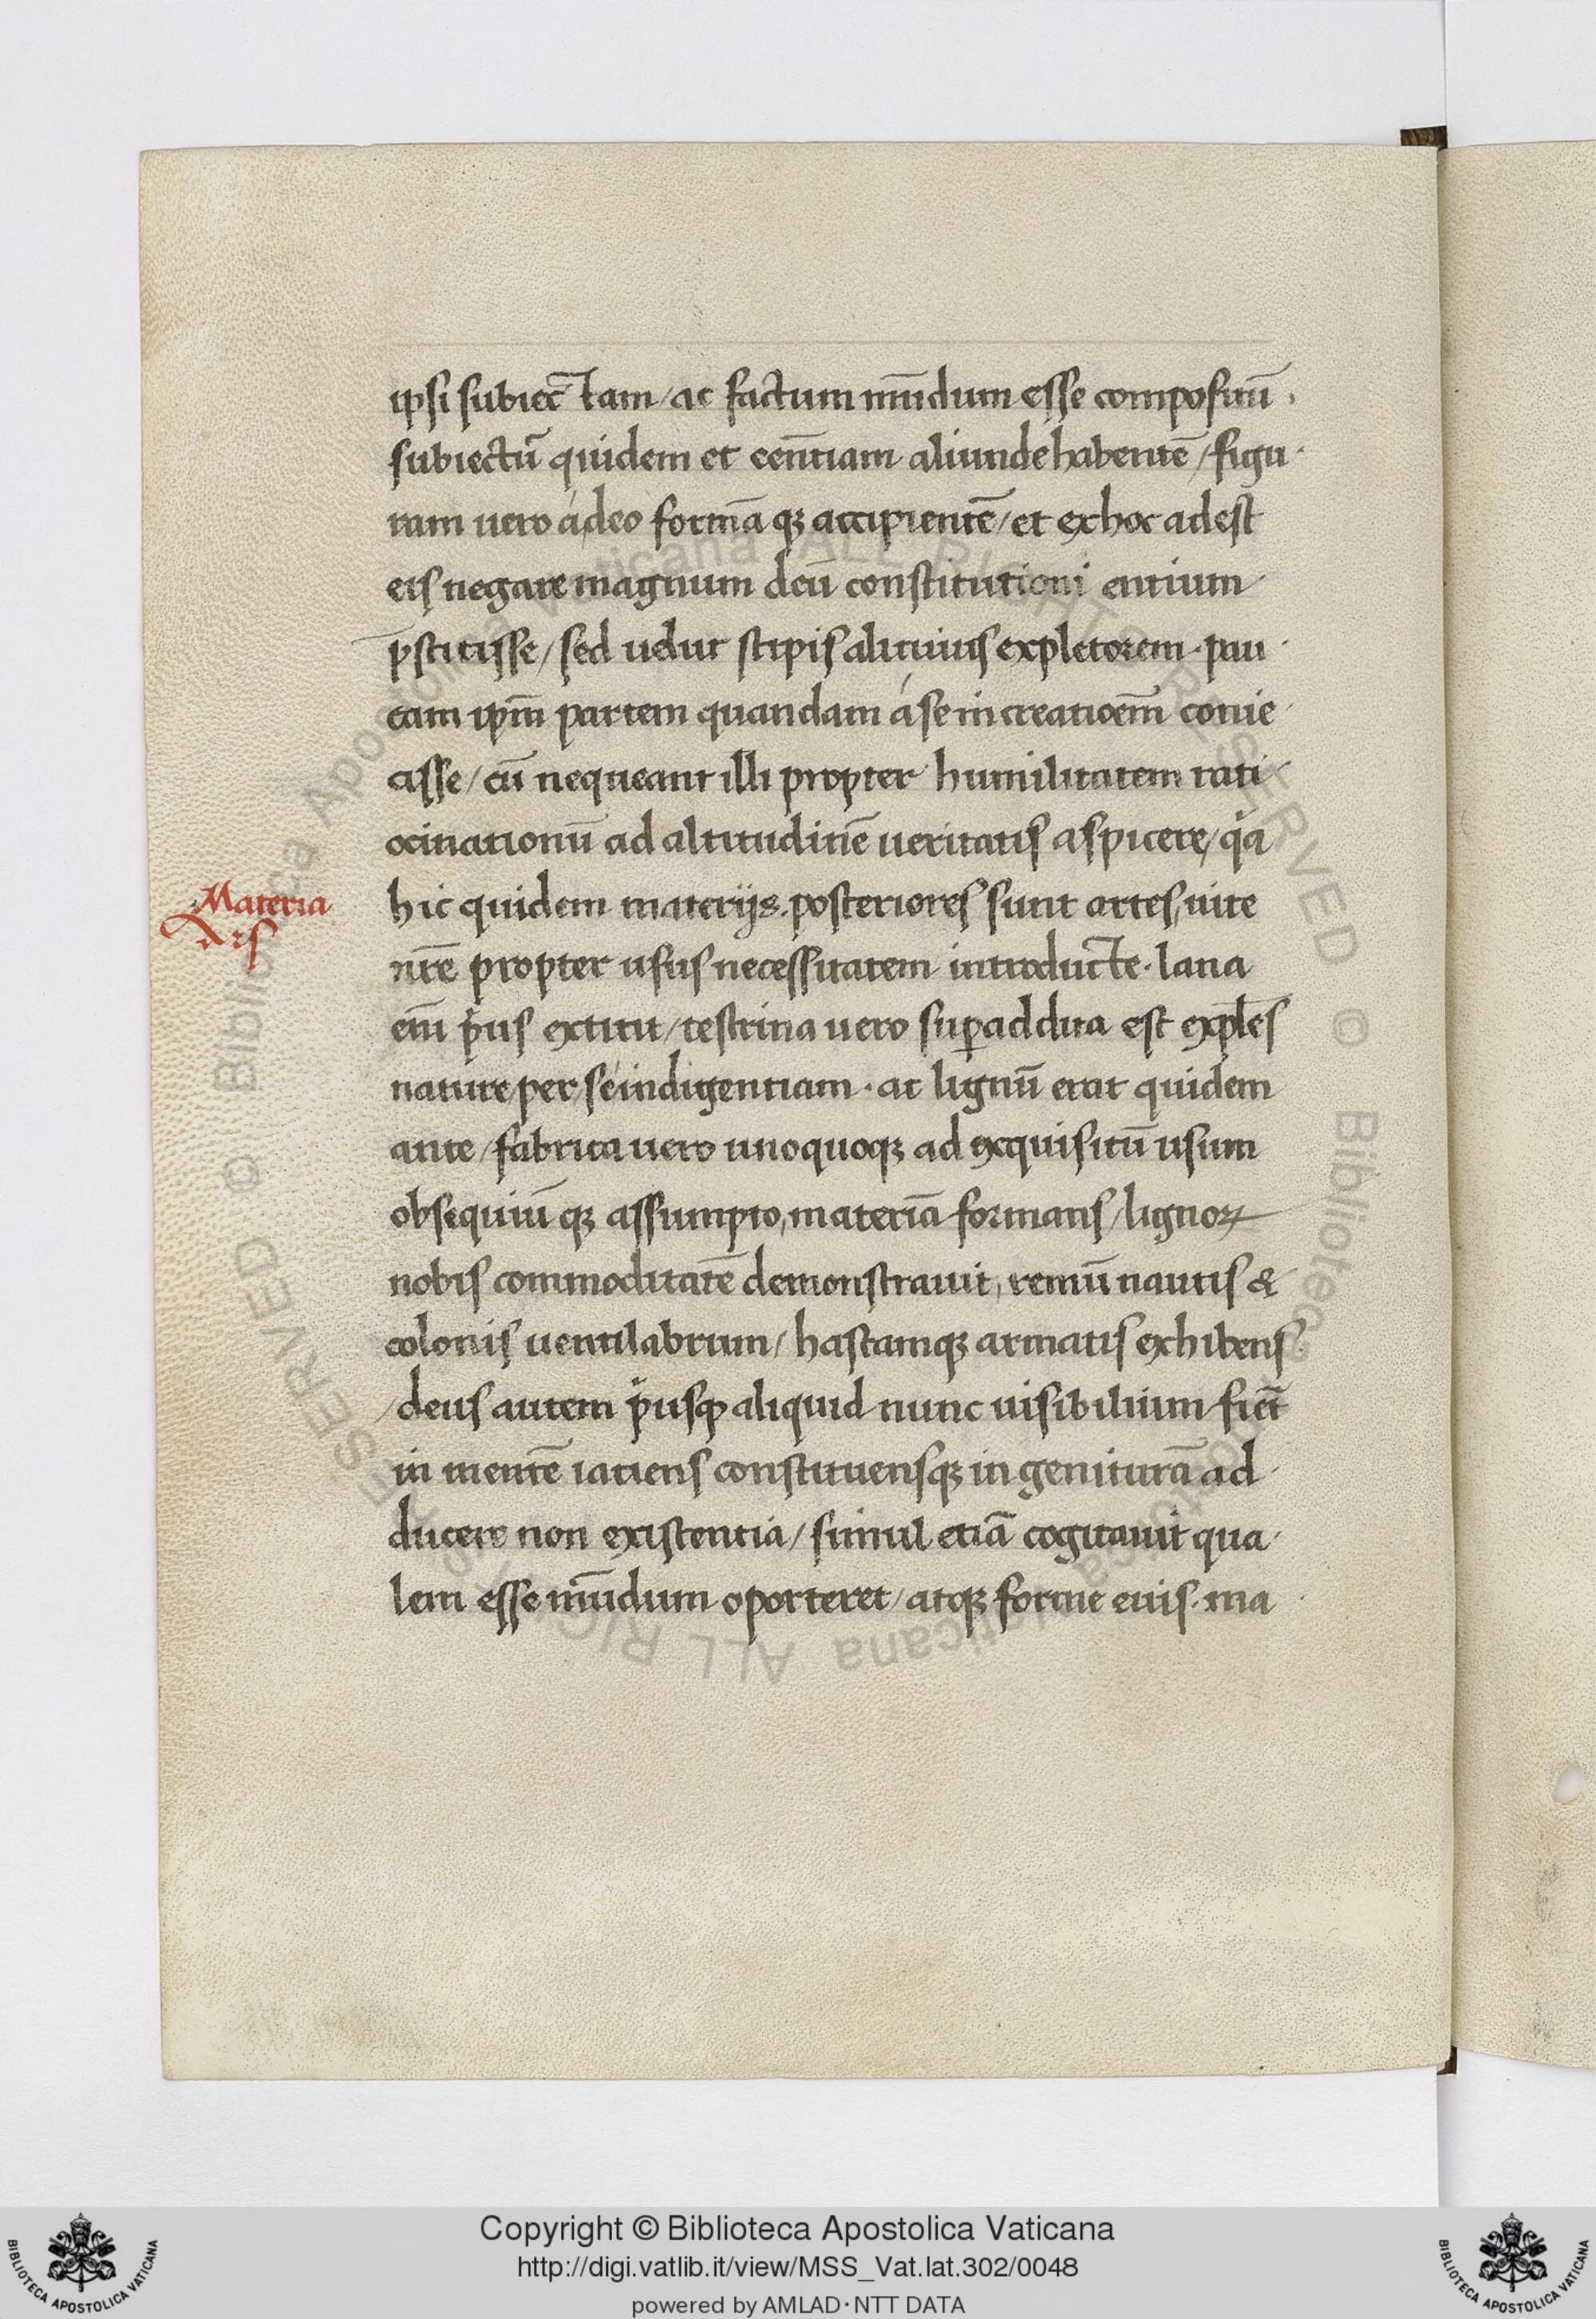 ipsi subiec̄tam / ac factum mūdum esse compositū .
subiectū quidem et eēntiam aliunde habentē / figu
ram vero a deo formā qꝫ accipientē / et ex hoc adest
eis negare magnum deū constitutioni entium
p̄stitisse / sed uelut stipis alicuius expletorem . pau
cam ip̄m partem quandam á se in creatioem̄ conie
cisse / cū nequeant illi propter humilitatem rati
ocinationū ad altitudinē ueritatis aspicere / qa
hic quidem materijs . posteriores sunt artes, uite
Materia
Ars
nr̄e propter usus necessitatem introducte . lana
eni̅ pius extitit / testrina uero suꝑaddita est exples
nature per se indigentiam . at lignū erat quidem
ante / fabrica uero unoquoqꝫ ad exquisitū usum
obsequiū qꝫ assumpto, materiā formans / lignoꝝ
nobis commoditatē demonstrauit, remū nautis &
colonis uentilabrum / hastamqꝫ armatis exhibens
/ deus autem piusqꝫ aliquid nunc uisibilium fiet̄
in mentē iaciens constituensqꝫ in genituram ad
ducere non existentia / simul etiā cogitauit qua
lem esse mūdum oporteret / atqꝫ forme euis . ma
Copyright © Biblioteca Apostolica Vaticana
http://digi.vatlib.it/view/MSS_Vat.lat.302/0048
powered by AMLAD · NTT DATA